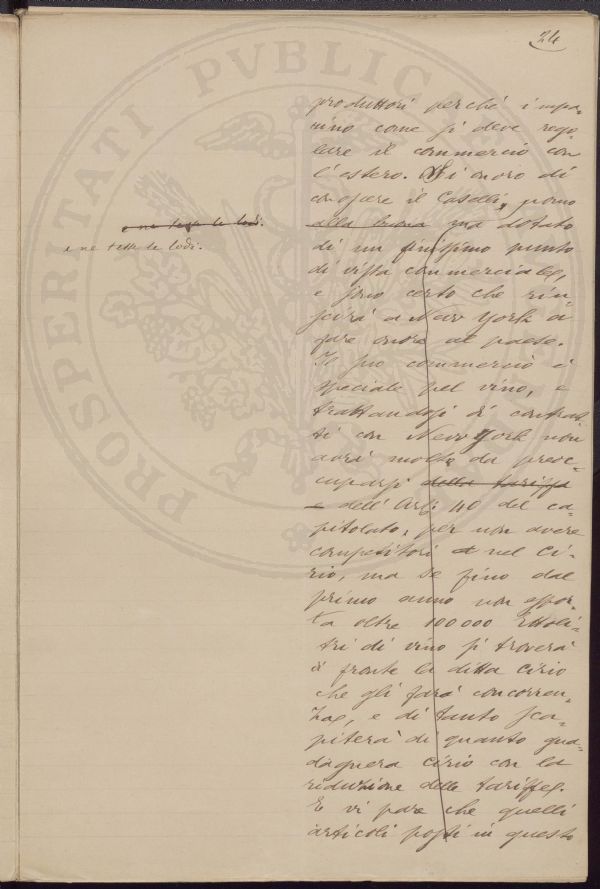 24
produttori perchè impa-
rino come si deve rego-
lare il commercio con
l'estero. Mi onoro di
conoscere il Caselli, uomo
alla buona ma dotato
di un finissimo punto
di vista commerciale,
e sono certo che riu-
scirà a New York a
fare onore al paese.
Il suo commercio è
speciale pel vino, e
trattandosi di contrat-
ti con New York non
avrà molto da preoc-
cuparsi della tariffa
e dell'Art. 40 del ca-
pitolato, per non avere
competitori nel Ci-
rio, ma se fino dal
primo anno non espor-
ta oltre 100000 Ettoli-
tri di vino si troverà
di fronte la ditta Cirio
che gli farà concorren-
za, e di tanto sca-
piterà di quanto gua-
dagnera Cirio con la
riduzione delle tariffe.
E vi pare che quelli
articoli posti in questo
e ne tesse le lodi.
e ne tesse le lodi.
PROSPERITATI PVBLICAE